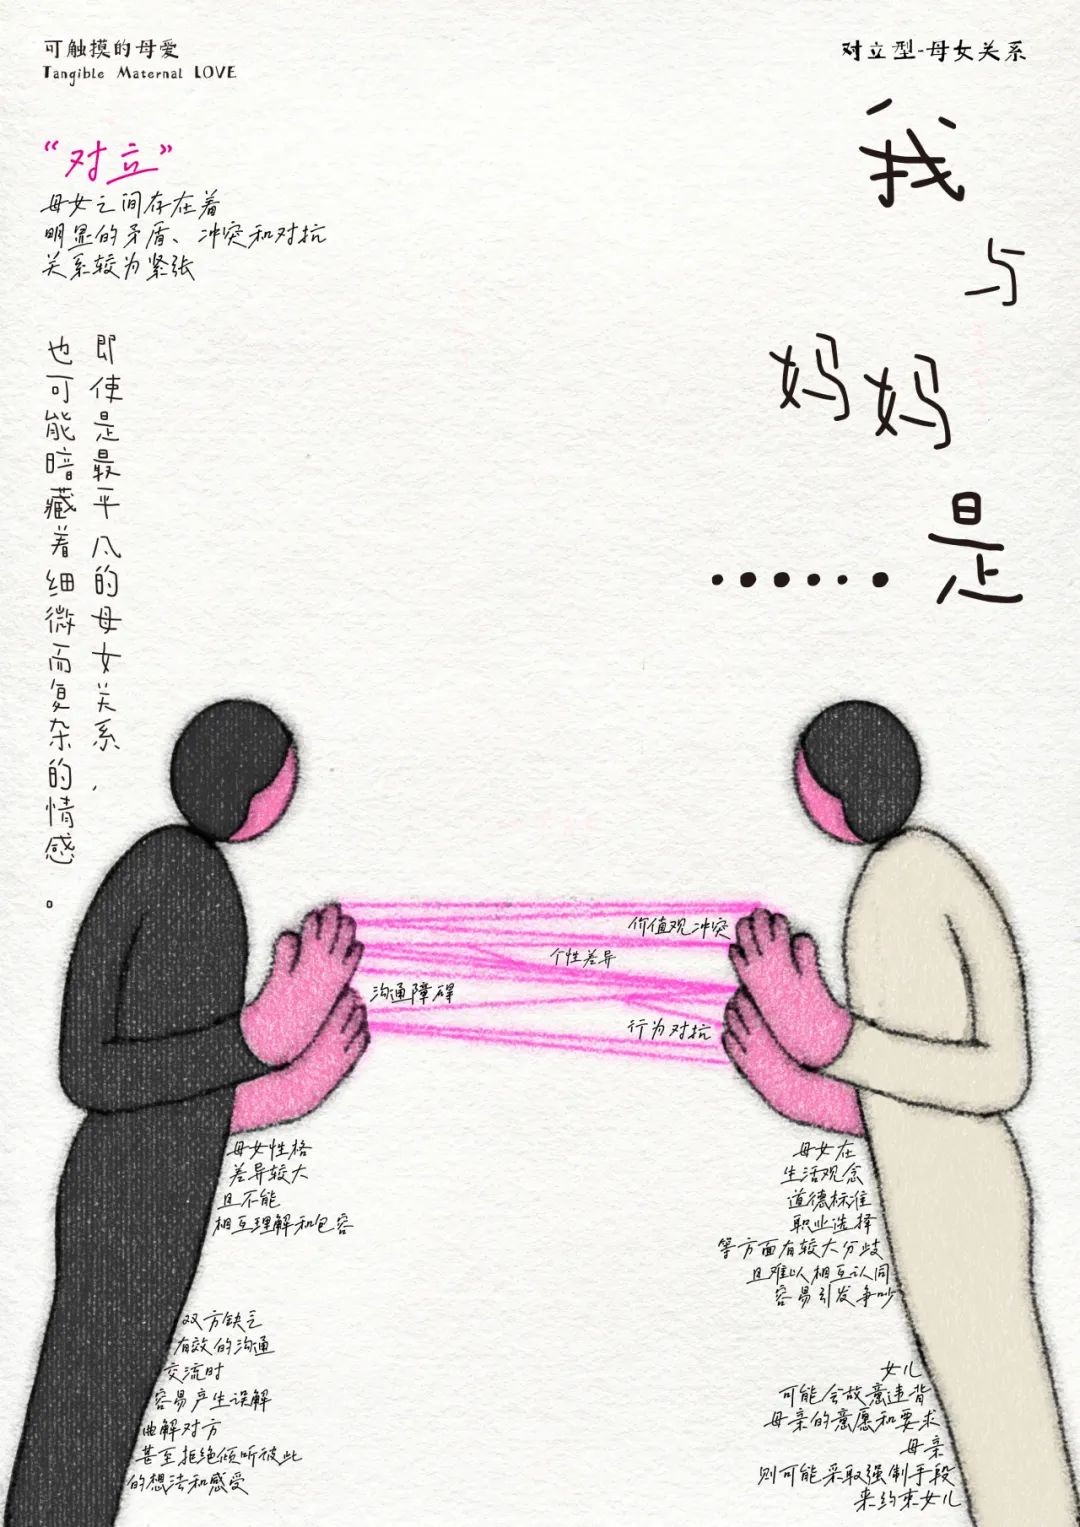 可触摸的母爱
Tangible Maternal LOVE
对立型-母女关系
我
与
妈妈
是
······
“对立”
母女之间存在着
明显的矛盾、冲突和对抗
关系较为紧张
即使是最平凡的母女关系，
也可能暗藏着细微而复杂的情感。
价值观冲突
个性差异
沟通障碍
行为对抗
母女性格
差异较大
且不能
相互理解和包容
母女在
生活观念
道德标准
职业选择
等方面有较大分歧
且难以相互认同
容易引发争吵
双方缺乏
有效的沟通
交流时
容易产生误解
曲解对方
甚至拒绝倾听彼此
的想法和感受
女儿
可能会故意违背
母亲的意愿和要求
母亲
则可能采取强制手段
来约束女儿